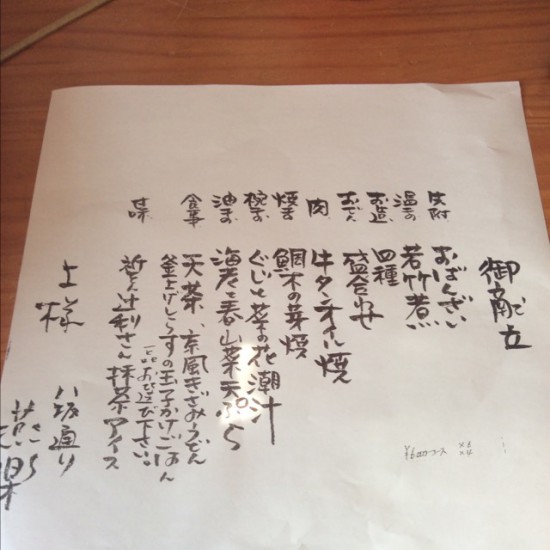 御献立
先附 おばんざい
温もの 若竹煮
お造 盛合わせ
おでん 四種
肉 牛タンオイル焼
焼き 鯛木の芽焼
椀もの ぐじと菜の花潮汁
油もの 海老と春山菜天ぷら
食事 天茶、京風きざみうどん
釜上げしらすの玉子かけごはん
一品お選び下さい。
甘味 祇をん辻利さん抹茶アイス
上様
八坂通り
燕楽